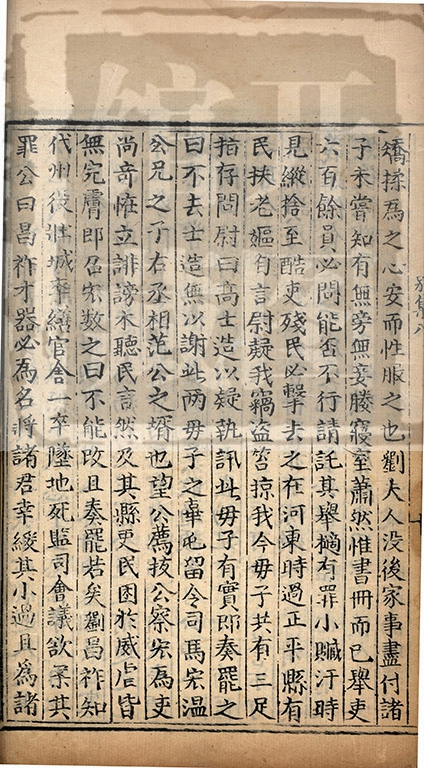 矯揉為之心安而性服之也劉大人没後家事盡付諸
子未嘗知有無旁無妾媵寢室蕭然惟書冊而已舉吏
六百餘員必問能否不行請託其舉檛有罪小贓汙時
見縱捨至酷吏殘民必擊去之在河東時過正平縣有
民挟老嫗自言尉疑我竊盗笞掠我今毋子共有三足
指存問尉曰高士造以疑執訊此毋子有實即奏罷之
曰不去士造無以謝此兩毋子之
留令司馬宏温
公兄之子右丞相范公之壻也望公薦拔公察宏為吏
尚奇惟立誹謗木聽民言然及其縣吏民困於威虐皆
無完膚即召宏數之曰不能改且奏罷若矣劉昌祚知
代州役壯城卒繕官舎一卒墜地死監司會議欲案其
罪公曰昌祚才器必為名將諸君幸緩其小過且為諸
别集八